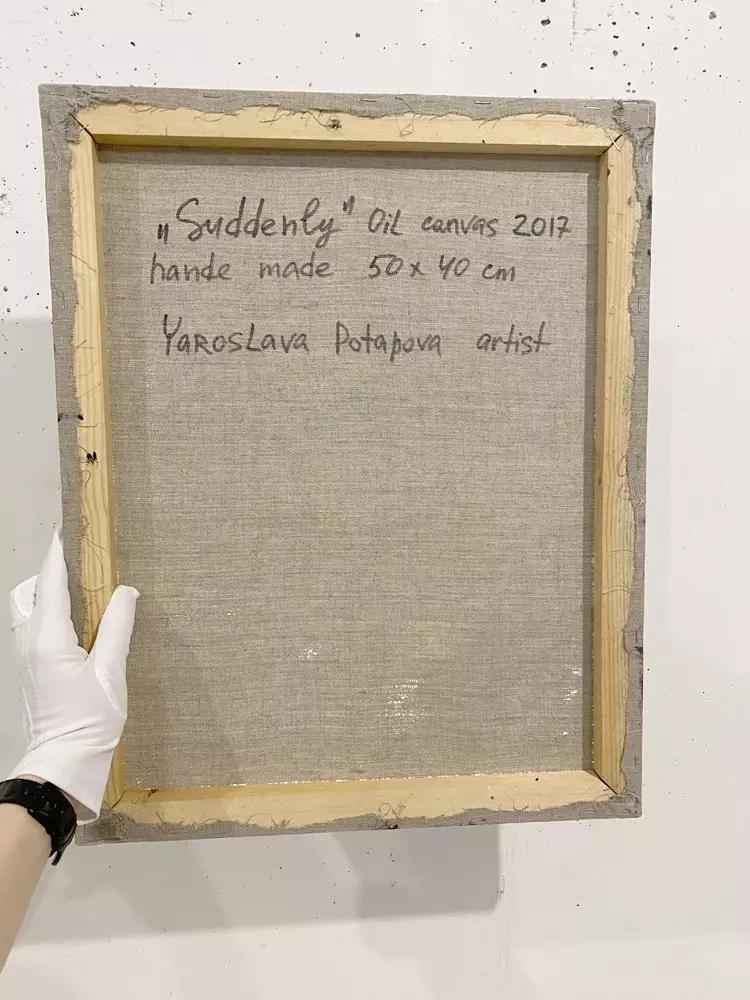 „Suddenly" Oil canvas 2017
hande made 50 x 40 cm
Yaroslava Potapova artist